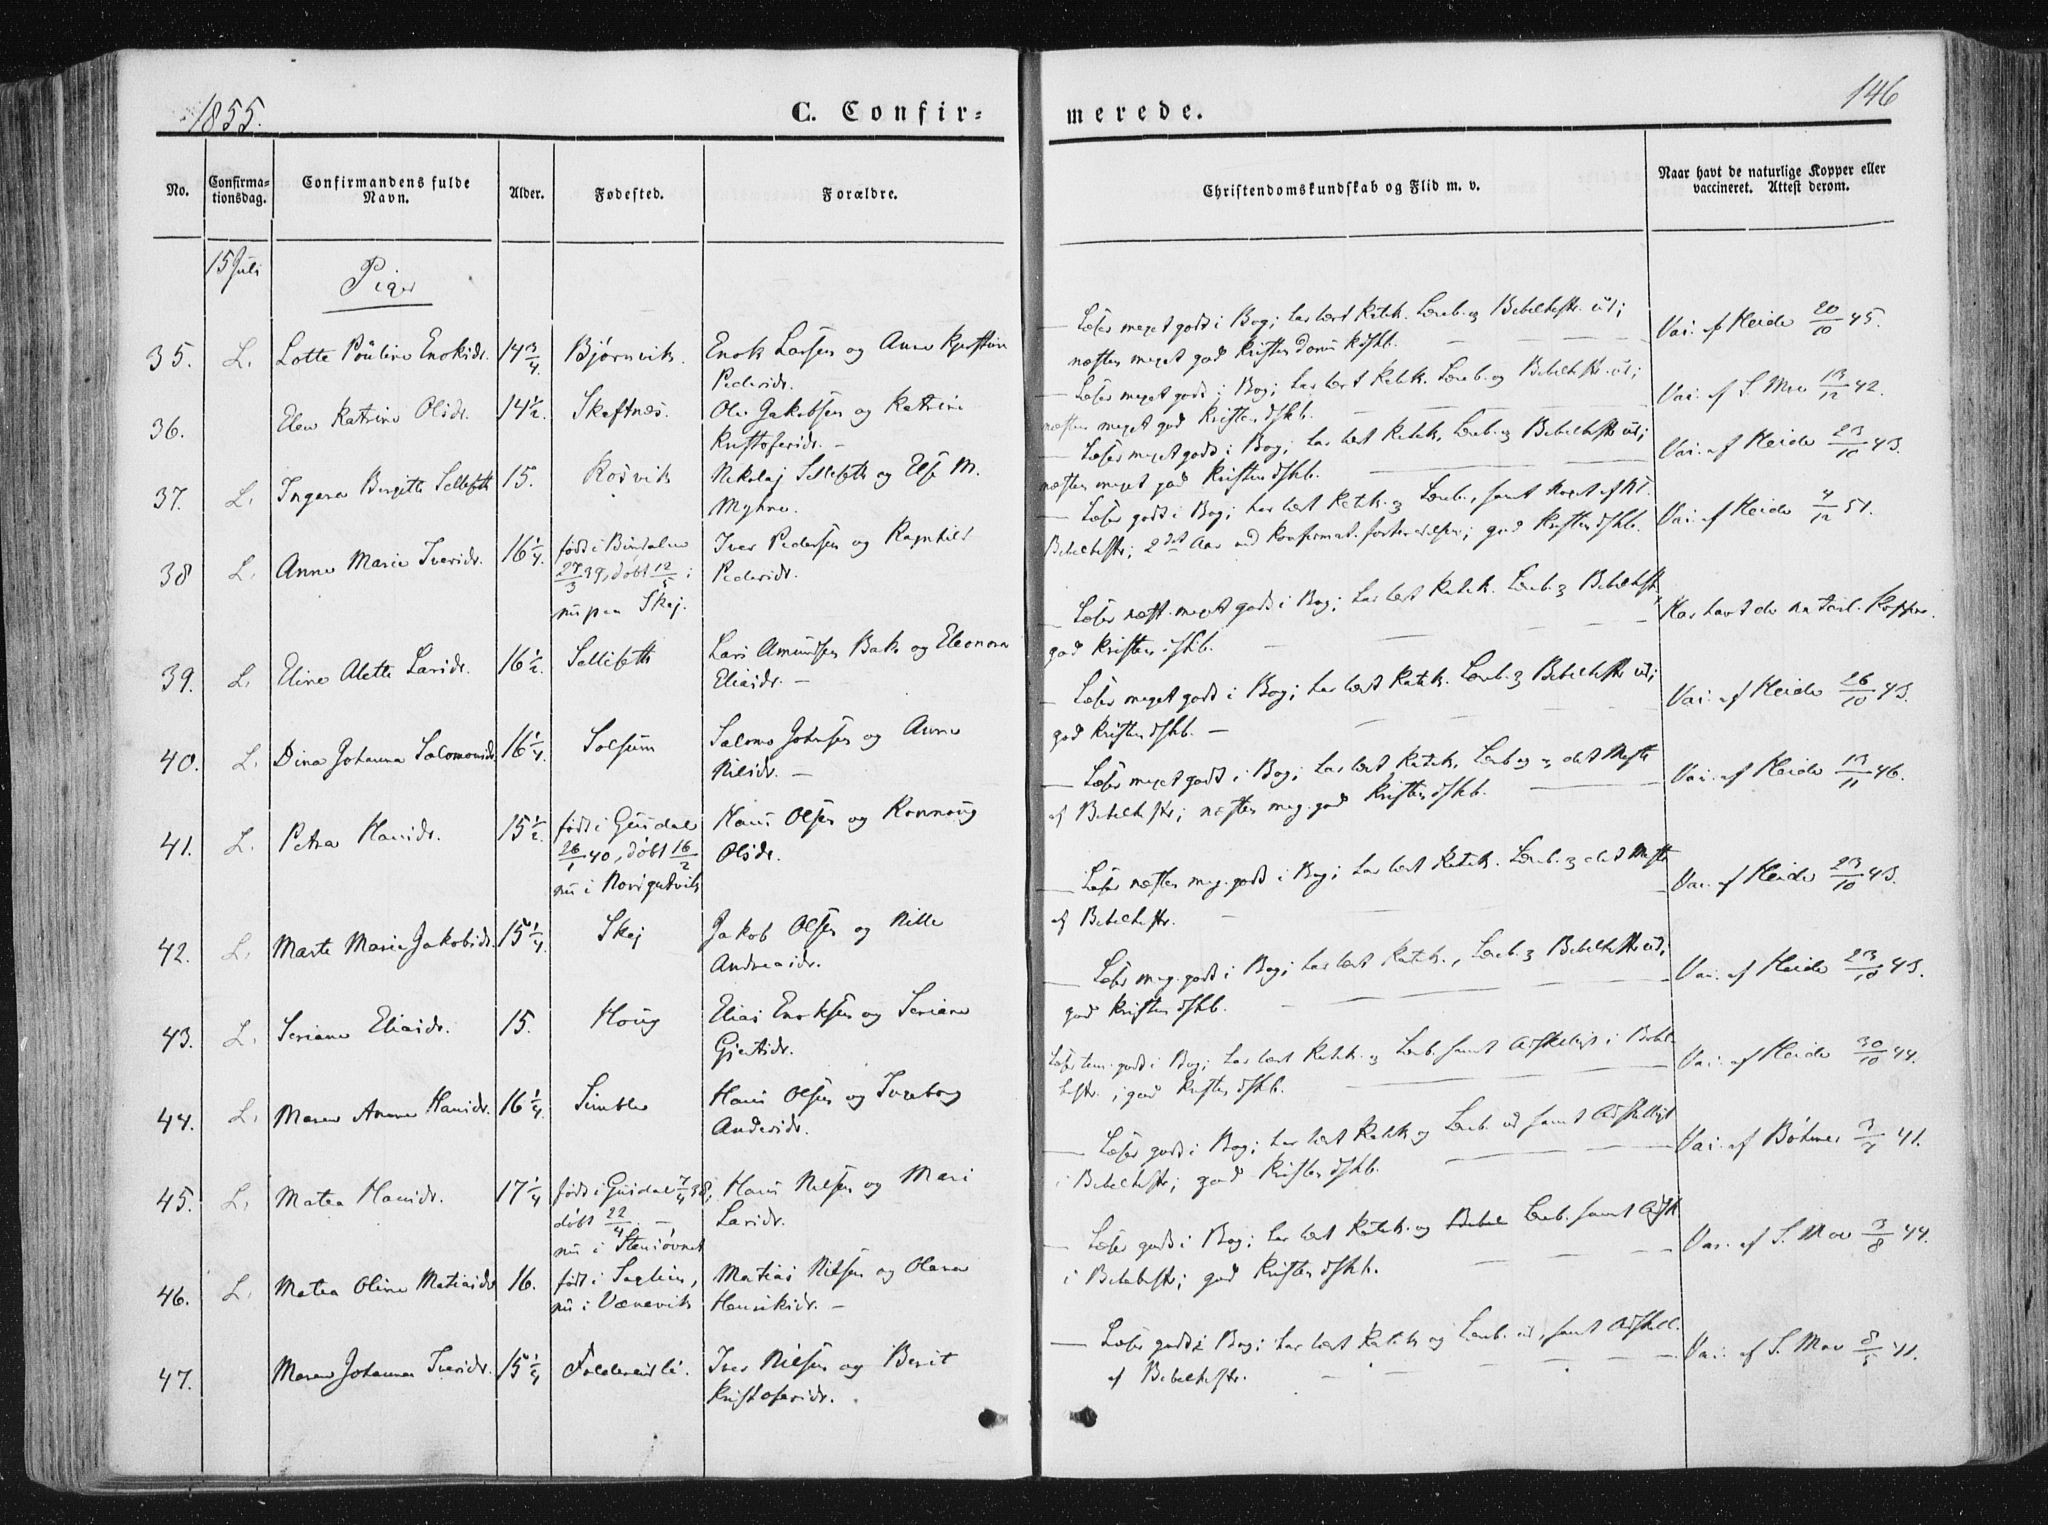 1855.
C. Confir-
merede.
146
No.
Confirma-
tionsdag.
Confirmandens fulde
Navn.
Alder.
Fødested.
Forældre.
Christendomskundskab og Flid m. v.
Naar havt de naturlige Kopper eller
vaccineret. Attest derom.
15 Juli
Piger
35. L. Lotte Pauline Enoksdr. 14 3/4 Bjørnvik. Enok Larsen og Anne
Pedersdr.
Læser meget godt i Bog; har lært Katek. Læreb. og Bibelhistr. ud;
næsten meget god Kristendoms kdskb.
Vac. af Heide 20/10 45.
36. Elen Katrine Olsdr. 14 1/2. Skeftnes. Ole Jakobsen og Katrine
Kristofersdr. —
Læser meget godt i Bog; har lært Katek. Læreb. og Bibelhistr. ud;
næsten meget god Kristendskb.
Vac. af S. Moe 13/12 42.
37. L. Ingera Birgitte Selleseth 15. Rosvik Nikolaj Selleseth og Else M.
Myhre.
Læser meget godt i Bog; har lært Katek. Læreb. og Bibelhistr. ud;
næsten meget god Kristendskb.
Vac. af Heide 23/10 43.
38 L. Anne Marie Iversdr. 16 1/4. født i Bindalen Iver Pedersen og Ragnhild
27/3 39, døbt 12/5; Pedersdr.
nu paa Skej.
Læser godt i Bog; har lært Katek. og Læreb., samt Noget af
Bibelhistr; 2det Aar ved Konfirmat. forberedelsen; god Kristendskb.
Vac. af Heide 4/12 51.
39. L. Eline Alette Larsdr. 16 1/2. Selleseth Lars Amundsen Bak og Eleonora
Eliasdr. —
Læser næst. meget godt i Bog; har lært Katek. Læreb. og Bibelhistr.
god Kristendskb.
Har havt de naturl. Kopper.
40. L. Dina Johanna Salomonsdr. 16 1/4. Solsem Salomo Johnsen og Anne
Nilsdr. —
Læser meget godt i Bog; har lært Katek. Læreb. og Bibelhistr. ud;
god Kristendskb. —
Vac. af Heide 26/10 43.
41. L. Petra Hansdr. 15 1/2 født i Hans Olsen og
26/1 40, døbt 16/2 Olsdr.
nu i
Læser meget godt i Bog; har lært Katek. Læreb. og det Meste
af Bibelhistr; næsten meg. god Kristendskb.
Vac. af Heide 13/11 46.
42. L. Marte Marie Jakobsdr. 15 1/4. Skej Jakob Olsen og Nille
Andreasdr.
Læser næsten meg. godt i Bog; har lært Katek. Læreb. og det Meste
af Bibelhistr.
Vac. af Heide 23/10 43.
43. L. Seriane Eliasdr. 15. Houg Elias Enoksen og Seriane
Gjertsdr.
Læser meg. godt i Bog; har lært Katek., Læreb. og Bibelhistr. ud;
god Kristendskb.
Vac. af Heide 23/10 43.
44. L. Maren Anna Hansdr. 16 1/4. Simble Hans Olsen og Ingeborg
Andersdr.
Læser tem. godt i Bog; har lært Katek. og Læreb. samt Adskilligt i Bibel-
histr.; god Kristendskb.
Vac. af Heide 30/10 44.
45. L. Matea Hansdr. 17 1/4 født i 7/4 38, Hans Nilsen og Mari
døbt 22/4. — Larsdr.
nu i
Læser godt i Bog; har lært Katek. og Læreb. ud samt Adskilligt
i Bibelhistr; god Kristendskb.
Vac. af Böhmer 41.
46. L. Matea Oline Matiasdr 16. født i Matias Nilsen og Olava
nu i Værevik Henriksdr. —
Læser godt i Bog; har lært Katek. og Læreb. samt Adsk.
i Bibelhistr; god Kristendskb.
Vac. af S. Moe 3/8 44.
47. Maren Johanna Iversdr. 15 1/4 Foldereidli. Iver Nilsen og Berit
Kristofersdr.
Læser godt i Bog; har lært Katek. og Læreb. ud, samt Adskill.
af Bibelhistr.
Vac. af S. Moe 8/5 41.